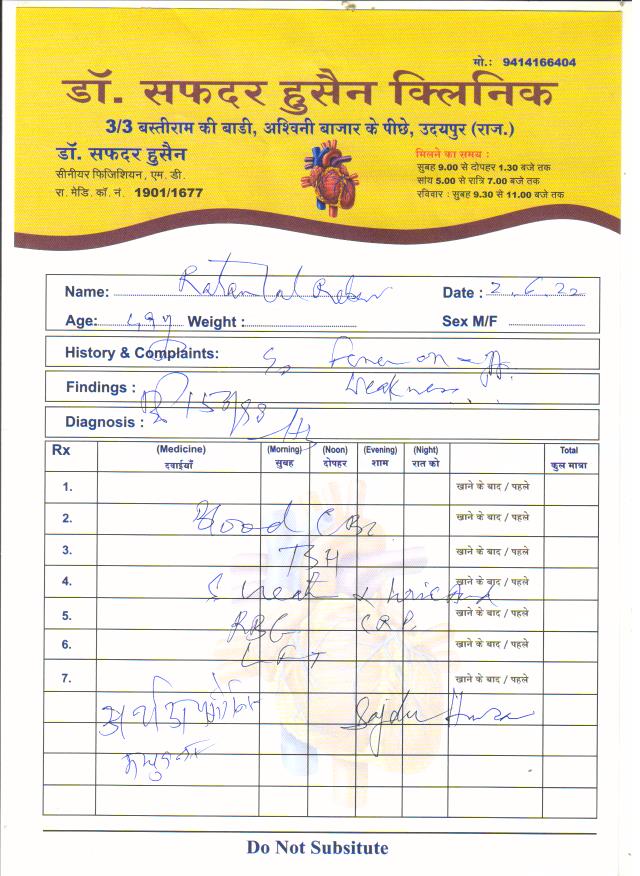 मो.: 9414166404
डॉ. सफदर हुसैन क्लिनिक
3/3 बस्तीराम की बाडी, अश्विनी बाजार के पीछे, उदयपुर (राज.)
डॉ. सफदर हुसैन
सीनीयर फिजिशियन, एम. डी.
रा. मेडि. कॉ. नं. 1901/1677
मिलने का समय :
सुबह 9.00 से दोपहर 1.30 बजे तक
सांय 5.00 से रात्रि 7.00 बजे तक
रविवार : सुबह 9.30 से 11.00 बजे तक
Name: Ratan Lal Date : 2.6.22
Age: Weight : Sex M/F
History & Complaints: Fever on
Findings : Weakness
Diagnosis :
Rx (Medicine) (Morning) (Noon) (Evening) (Night) Total
दवाईयाँ सुबह दोपहर शाम रात को कुल मात्रा
1. खाने के बाद / पहले
2. Blood खाने के बाद / पहले
3. TSH खाने के बाद / पहले
4. S. खाने के बाद / पहले
5. CRP खाने के बाद / पहले
6. LFT खाने के बाद / पहले
7. खाने के बाद / पहले
Do Not Subsitute